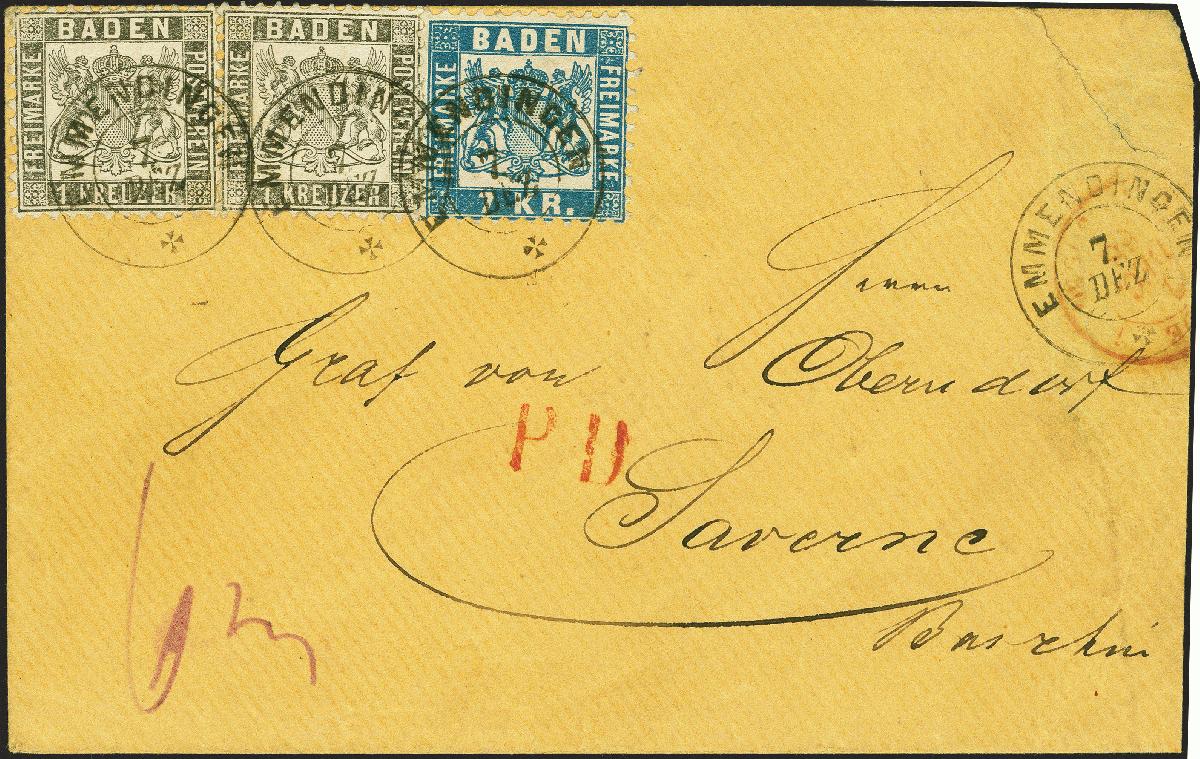 BADEN
FREIMARKE
POSTVEREIN
1 KREUZER
BADEN
FREIMARKE
POSTVEREIN
1 KREUZER
BADEN
FREIMARKE
FREIMARKE
KR.
EMMENDINGEN
7.
DEZ
EMMENDINGEN
EMMENDINGEN
7.
DEZ
EMMENDINGEN
7.
DEZ
Herrn
Graf von Oberndorf
PD
Saverne